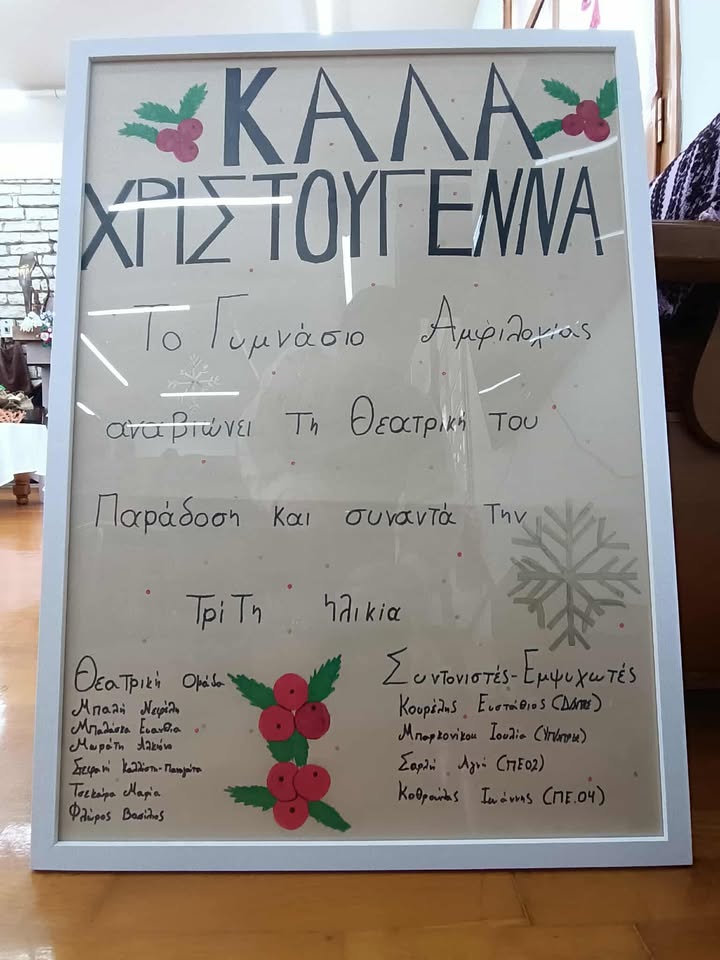 ΚΑΛΑ
ΧΡΙΣΤΟΥΓΕΝΝΑ
Το Γυμνάσιο Αμφιλοχίας
αναβιώνει τη Θεατρική του
Παράδοση και συναντά την
Τρίτη ηλικία
Θεατρική Ομάδα
Συντονιστές-Εμψυχωτές
Μπαλή Νεφέλη
Μπαλάσκα Ευανθία
Μωραΐτη Αλκιόνη
Καλλίστη-Παναγιώτα
Τσεκούρα Μαρία
Φλώρος Βασίλειος
Κουρέλης Ευστάθιος
Μπαρκονίκου Ιουλία
Σαρλή Αγνή (ΠΕ02)
Ιωάννης (ΠΕ.04)